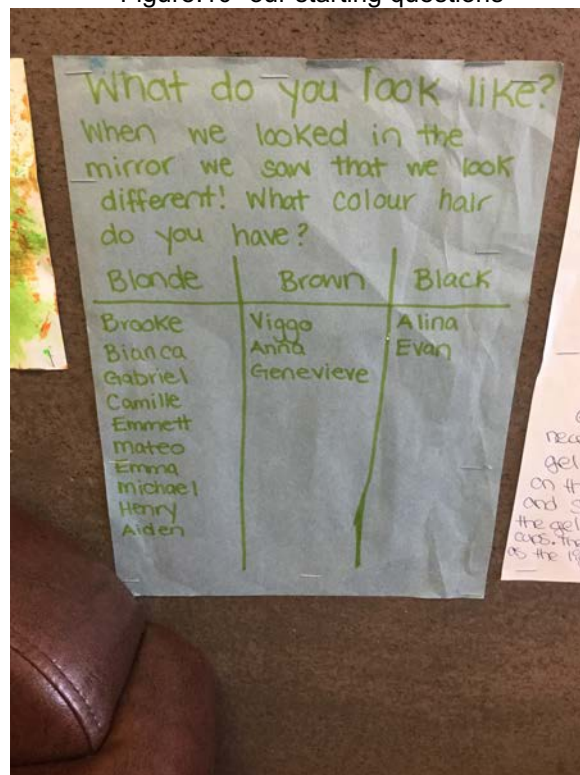 our starting questions
What do you look like?
When we looked in the
mirror we saw that we look
different! What colour hair
do you have?
Blonde Brown Black
Brooke Viggo Alina
Bianca Anna Evan
Gabriel Genevieve
Camille
Emmett
mateo
Emma
michael
Henry
Aiden
gel
on th
and s
the gel
cups. the